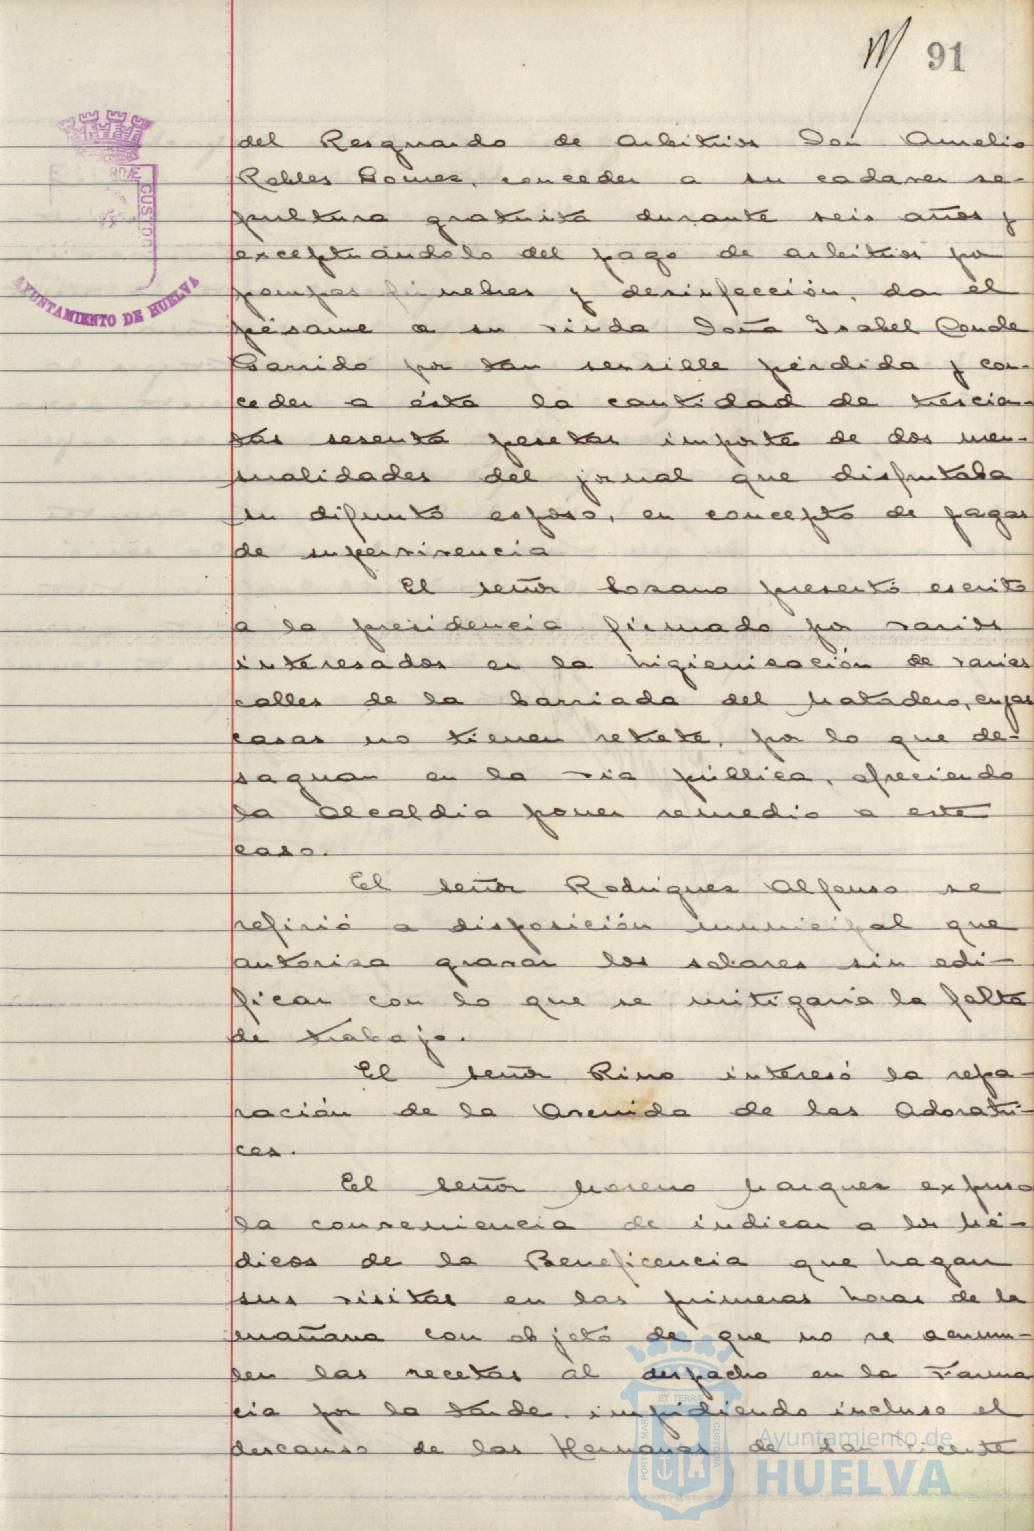 91
AYUNTAMIENTO DE HUELVA
del Resguardo de Arbitrios Don Aurelio
Robles Gomez, conceder a su cadaver se-
pultura gratuita durante seis años y
exceptuándolo del pago de arbitrios por
pompas fúnebres y desinfección, dar el
pésame a su viuda Doña Isabel Conde
Garrido por tan sensible pérdida y con-
ceder a ésta la cantidad de trescien-
tas sesenta pesetas importe de dos men-
sualidades del jornal que disfrutaba
su difunto esposo, en concepto de pagas
de supervivencia
El señor Lozano presentó escrito
a la presidencia firmado por varios
interesados en la higienización de varias
calles de la barriada del Matadero, cuyas
casas no tienen retrete, por lo que de-
saguan en la via pública, ofreciendo
la Alcaldia poner remedio a este
caso.
El señor Rodriguez Alfonso se
refirió a disposición municipal que
autoriza gravar los solares sin edi-
ficar con lo que se mitigaria la falta
de trabajo.
El señor Pino interesó la repa-
ración de la Avenida de las Adoratri-
ces.
El señor Moreno Marquez expuso
la conveniencia de indicar a los Mé-
dicos de la Beneficencia que hagan
sus visitas en las primeras horas de la
mañana con objeto de que no se acumu-
len las recetas al despacho en la Farma
cia por la tarde impidiendo incluso el
descanso de las Hermanas de San Vicente
Ayuntamiento de
HUELVA